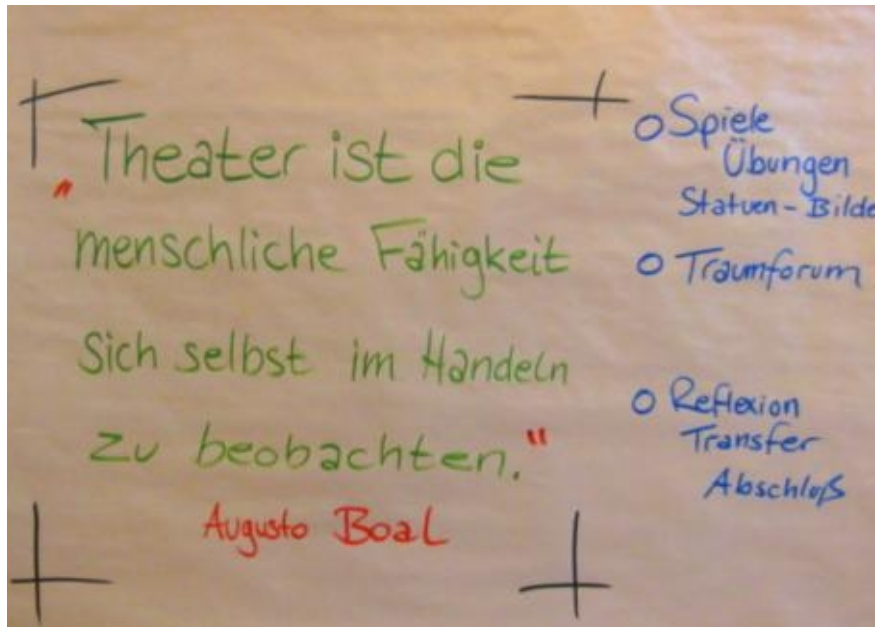 „Theater ist die
menschliche Fähigkeit
Sich selbst im Handeln
zu beobachten."
Augusto Boal
o Spiele
Übungen
Statuen - Bilde
o Traumforum
o Reflexion
Transfer
Abschluß